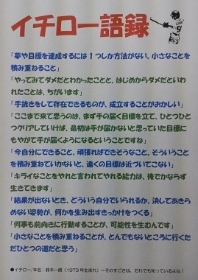 イチロー語録
「夢や目標を達成するには1つしか方法がない。小さなことを
積み重ねること」
「やってみてダメだとわかったことと、はじめからダメだといわ
れたことは、ちがいます」
「手抜きをして存在できるものが、成立することがおかしい」
「ここまで来て思うのは、まず手の届く目標を立て、ひとつひと
つクリアしていけば、最初は手が届かないと思っていた目標に
もやがて手が届くようになるということですね」
「今自分にできること。頑張ればできそうなこと。そういうこと
を積み重ねていかないと、遠くの目標は近づいてこない」
「キライなことをやれと言われてやれる能力は、後でかならず
生きてきます」
「結果が出ないとき、どういう自分でいられるか。決してあきら
めない姿勢が、何かを生み出すきっかけをつくる」
「何事も前向きに行動することが、可能性を生むんです」
「小さなことを積み重ねることが、とんでもないところに行くた
だひとつの道だと思う」